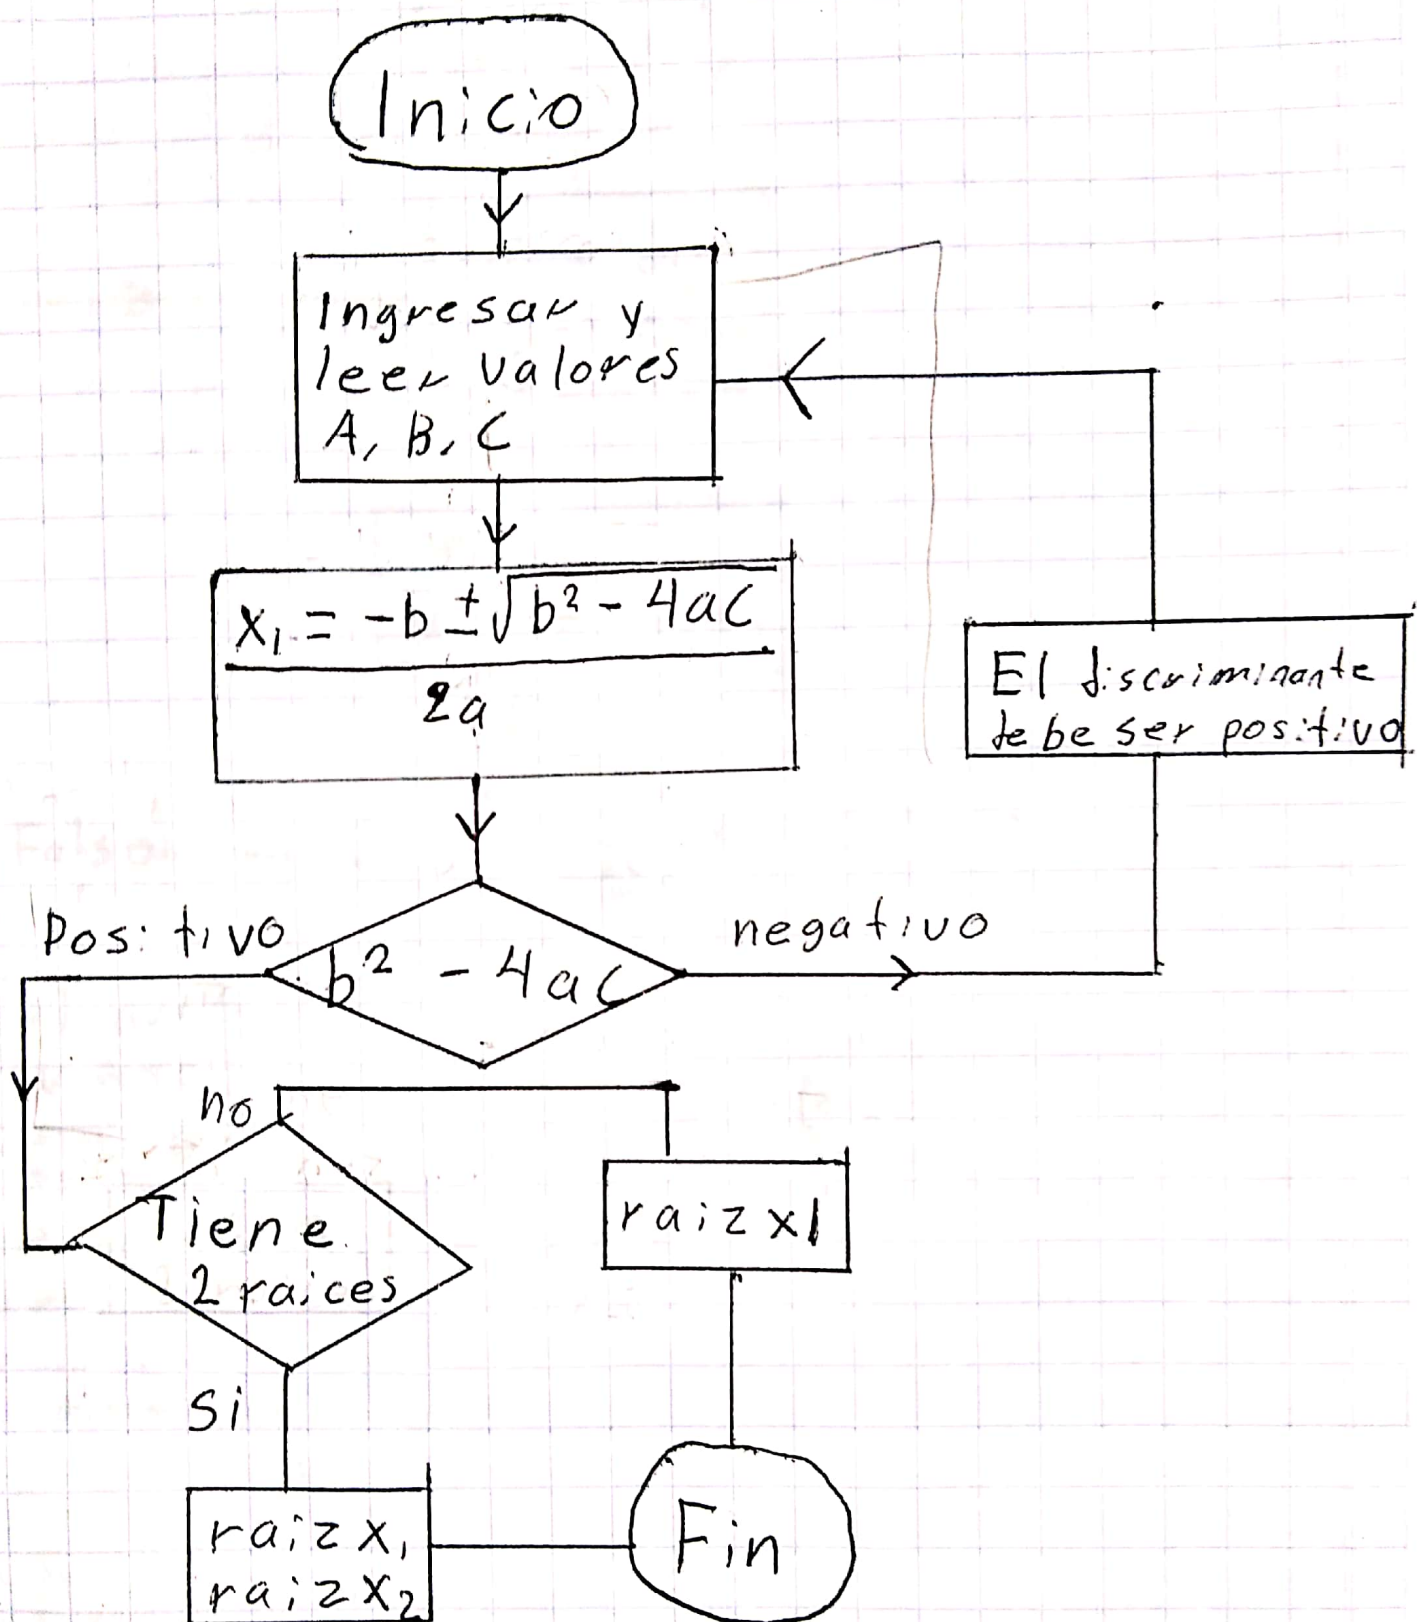 Inicio
Ingresar y
leer valores
A, B, C
x₁ = -b ± √b² - 4ac
2a
El discriminante
debe ser positivo
Positivo
negativo
b² - 4ac
no
Tiene
2 raices
raiz x1
Si
raiz x₁
raiz x₂
Fin